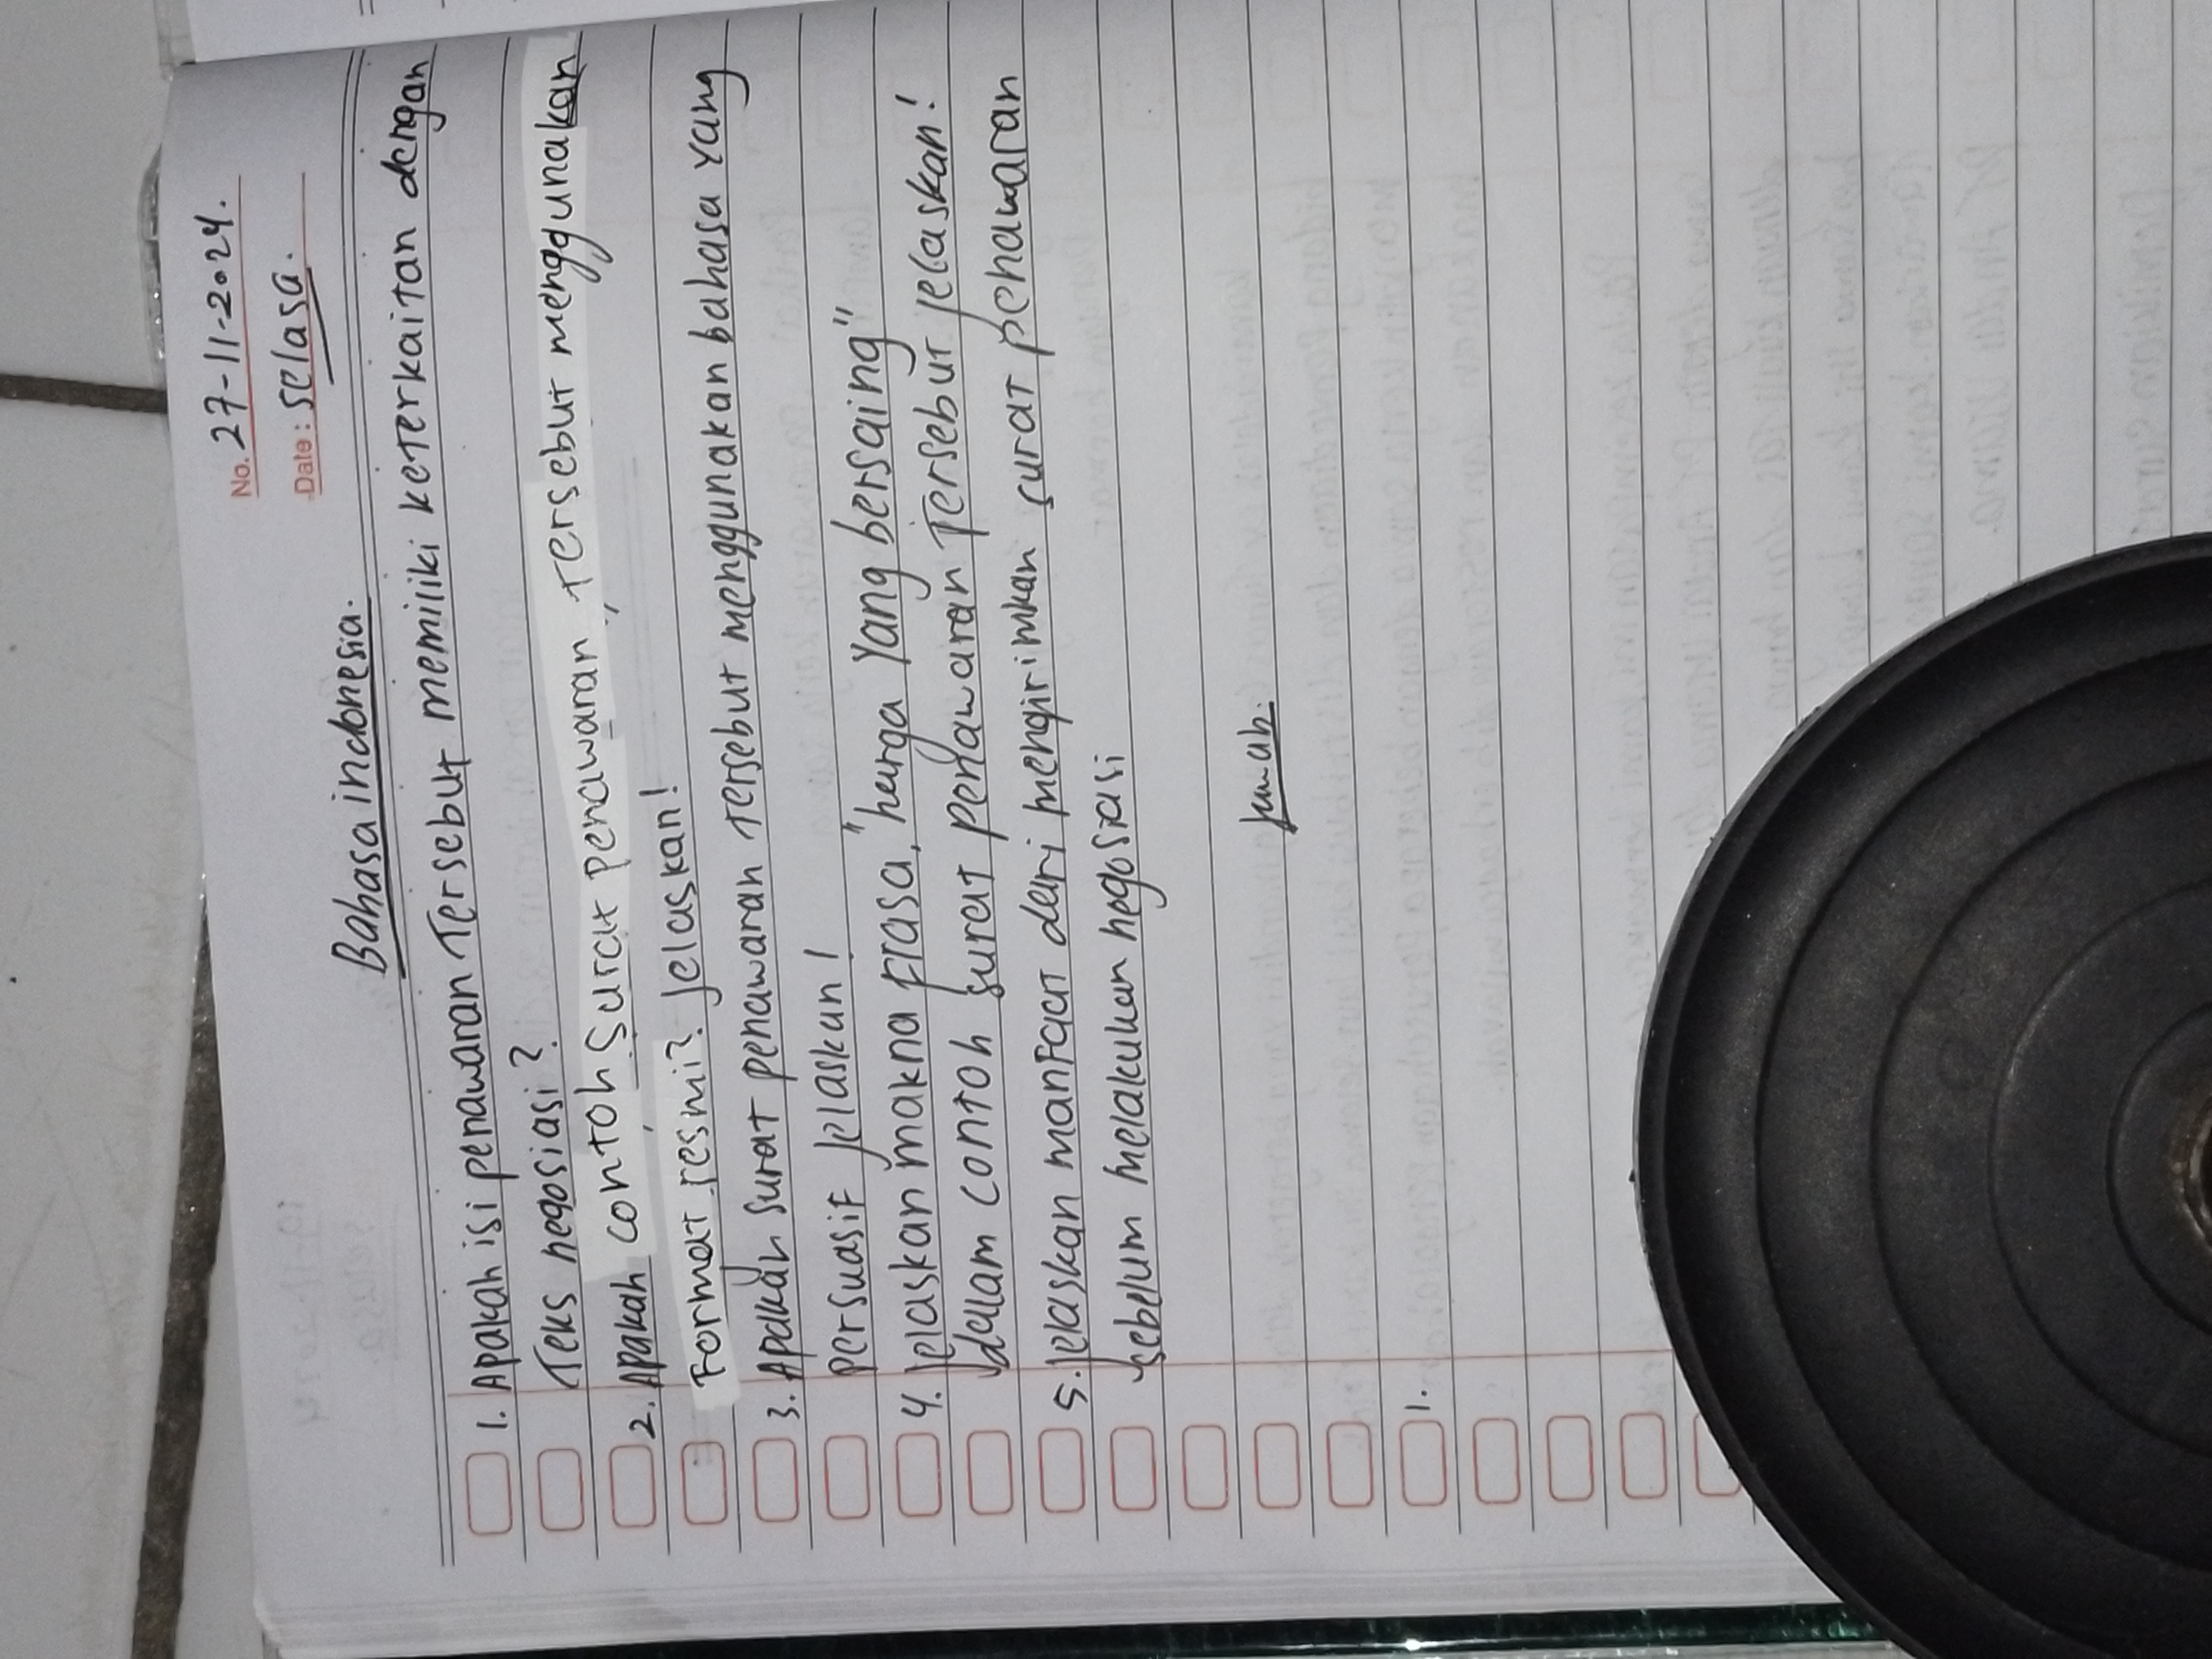 No. 27-11-2024.
Date: selasa.
Bahasa indonesia.
1. Apakah isi penawaran Tersebut memiliki keterkaitan dengan
Teks negosiasi?
2. Apakah contoh surat penawaran, tersebut menggunakan
Format resmi? Jelaskan!
3. Apakah surat penawaran tersebut menggunakan bahasa yang
persuasif Jelaskan!
4. Jelaskan makna frasa, "harga Yang bersaing"
dalam contoh surat penawaran Tersebut jelaskan!
5. Jelaskan manfaat dari mengirimkan surat penawaran
sebelum melakukan negosiasi
Jawab.
1.